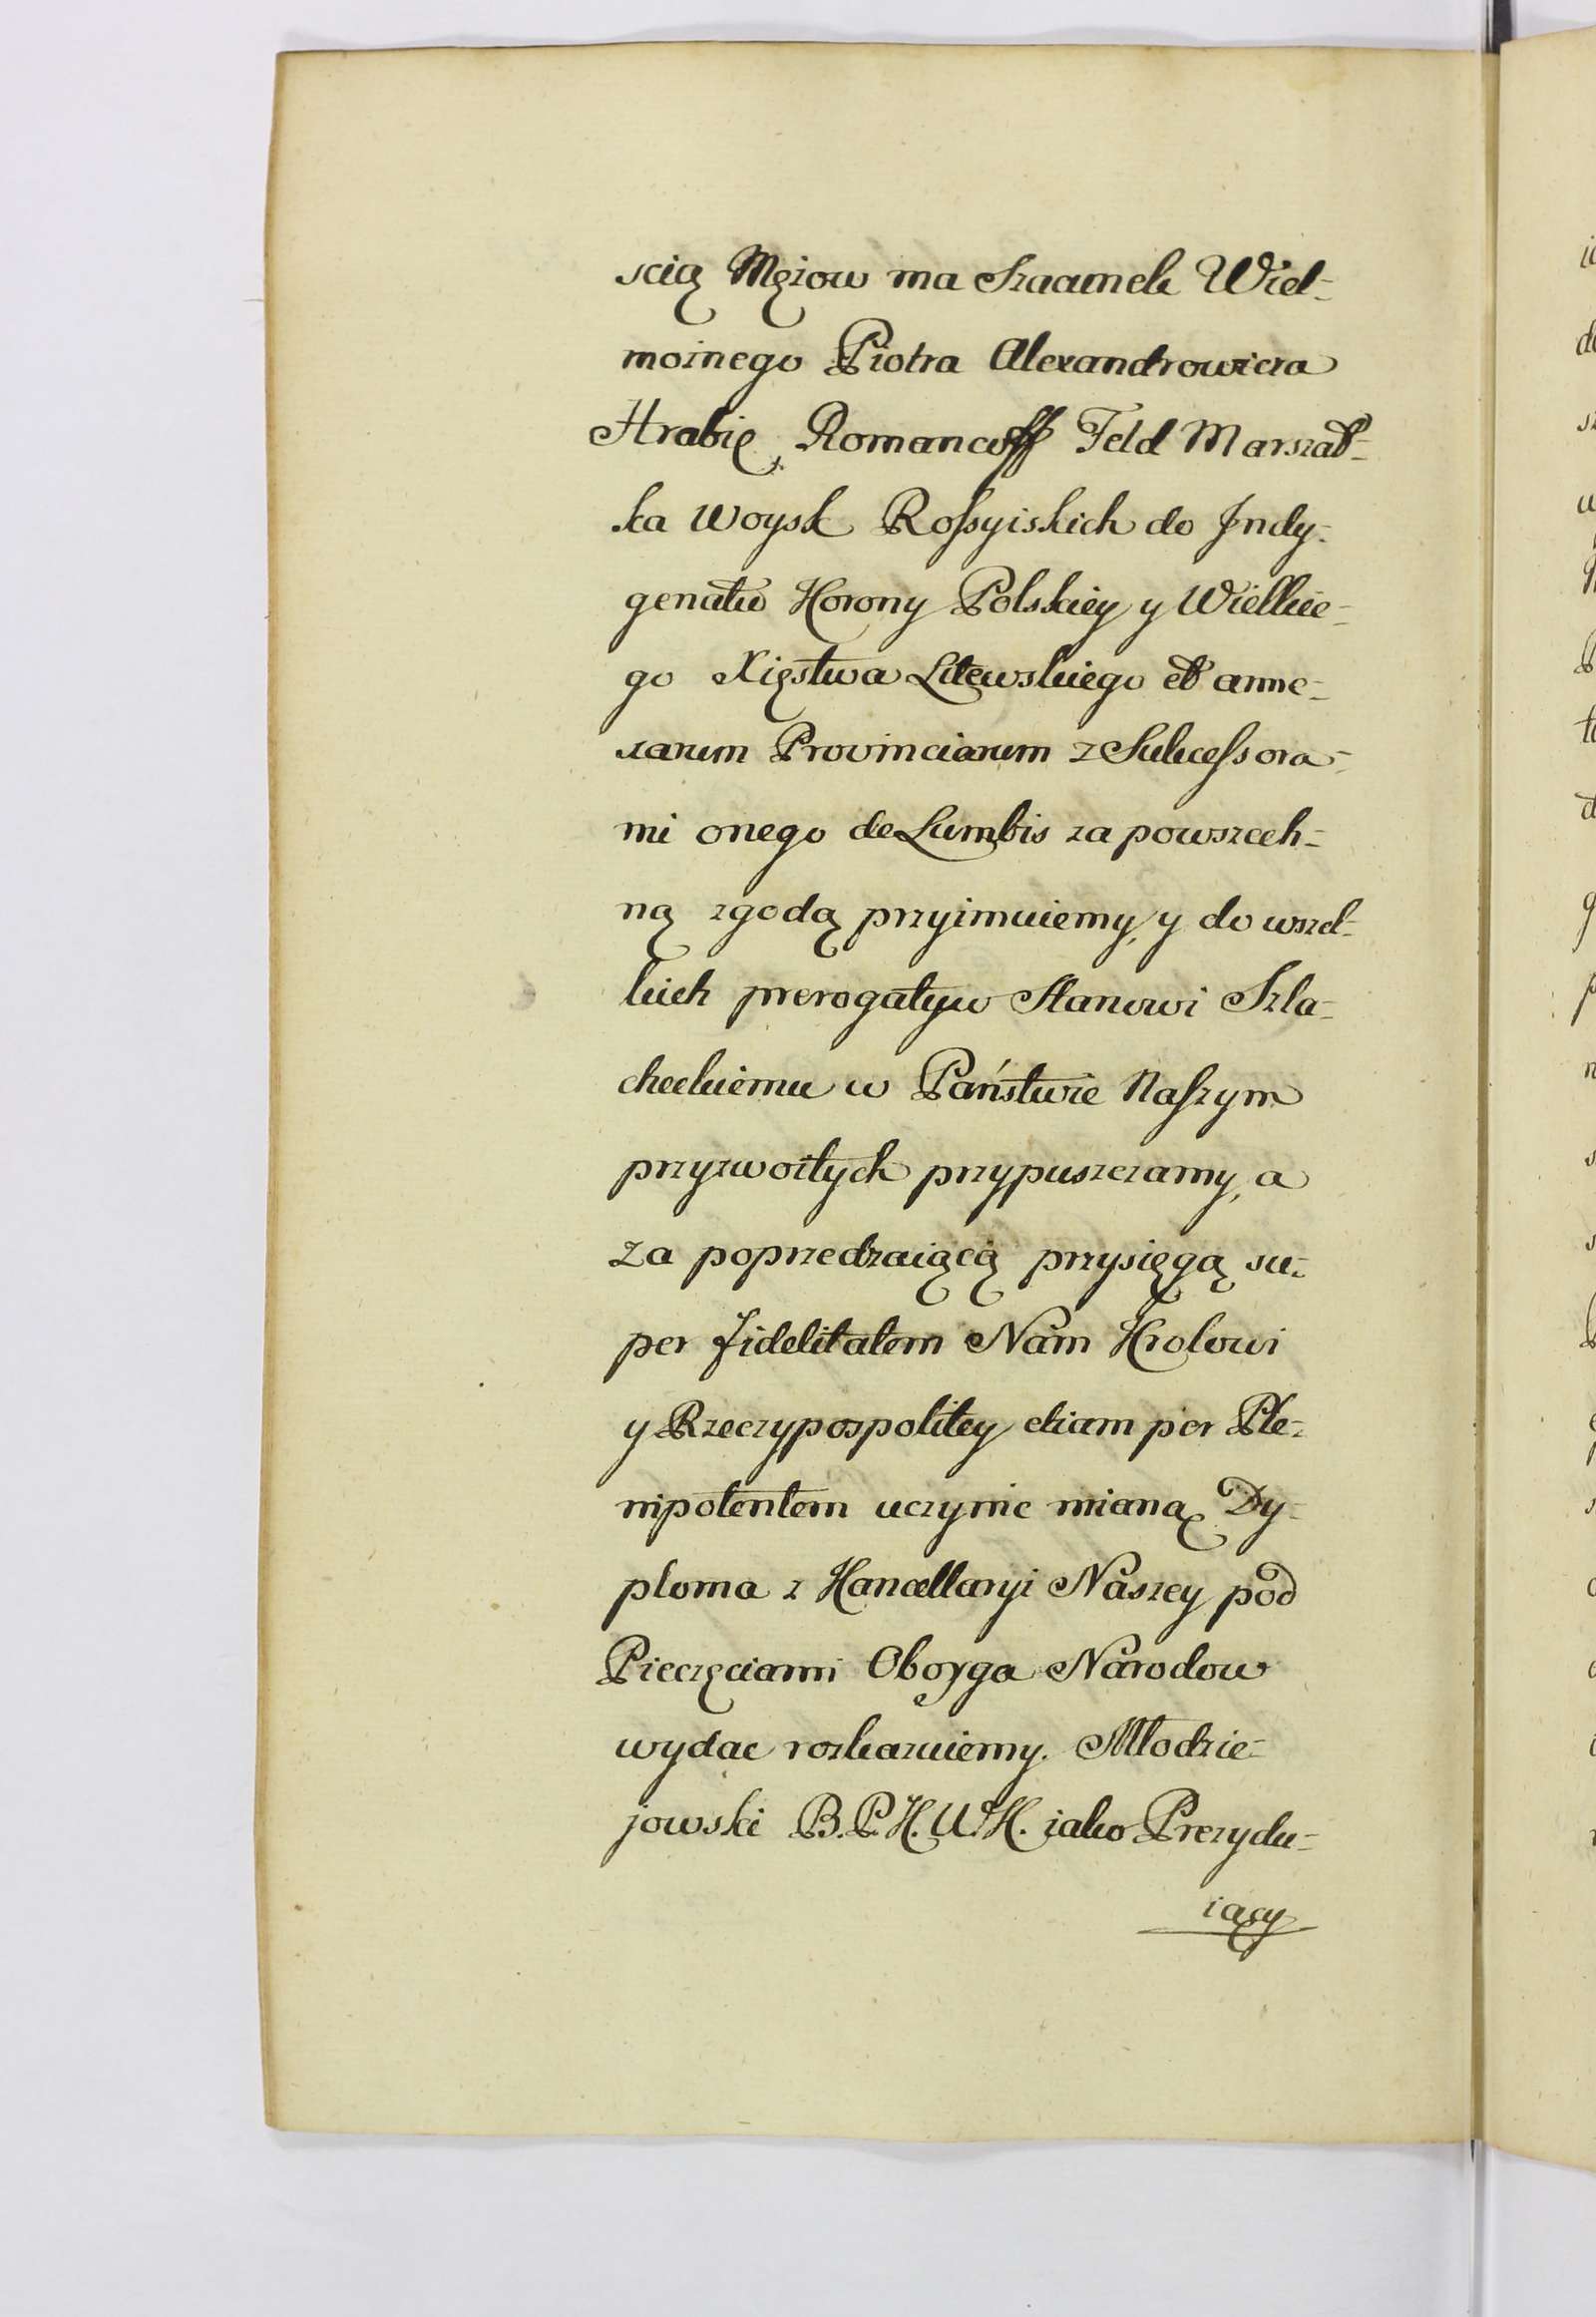 scią Męzow ma Szacunek Wiel-
moznego Piotra Alexandrowicza
Hrabię, Romancoff Feld Marszał-
ka Woysk Roſsyiskich do Indy-
genatu Korony Polskiey y Wielkie-
go Xięstwa Litewskiego et anne-
xarum Provinciarum z Sukceſsora-
mi onego de Lumbis za powszech-
ną zgodą przyimuiemy, y do wszel-
kich prerogatyw Stanowi Szla-
checkiemu w Państwie Naſzym
przyzwoitych przypuszczamy, a
za poprzedzaiącą przysięgą su-
per fidelitatem Nam Krolowi
y Rzeczypospolitey etiam per Ple-
nipotentem uczynic mianą Dy-
ploma z Kancellaryi Naszey pod
Pieczęciami Oboyga Narodow
wydac rozkazuiemy. Młodzie-
jowski B. P. K. W. K. iako Prezydu-
iący